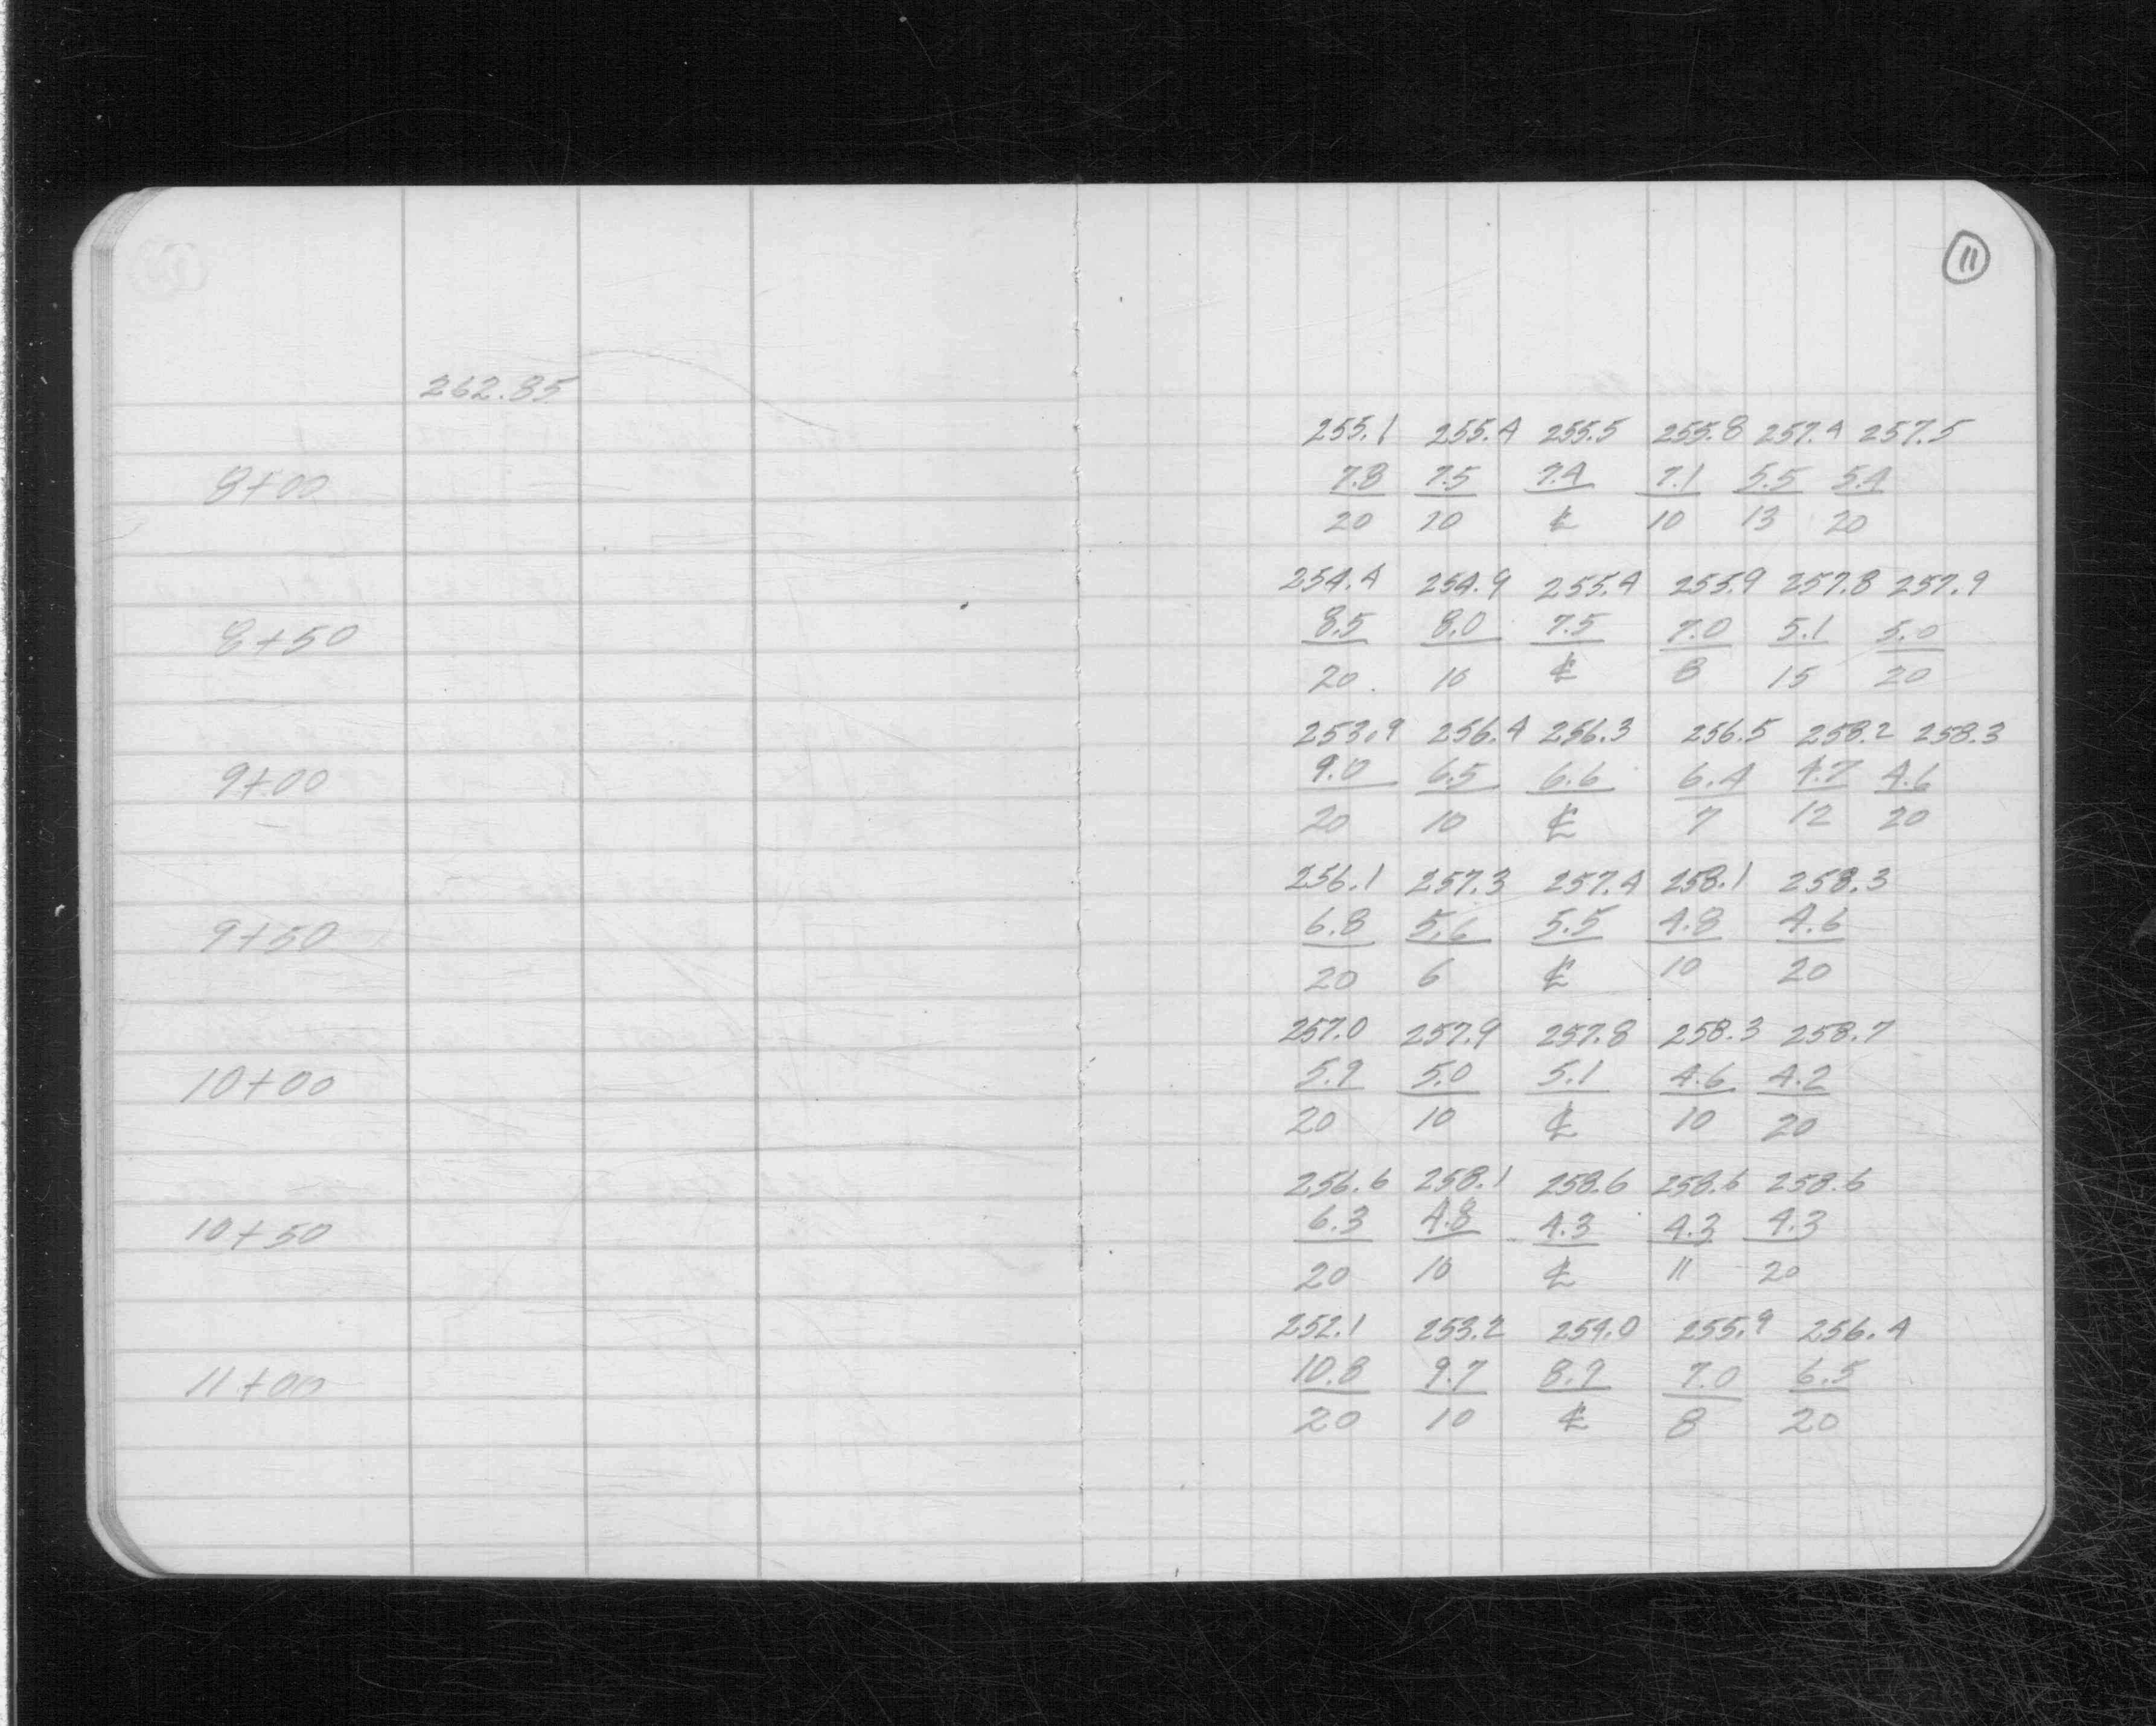 11
262.85
255.1 255.4 255.5 255.8 257.4 257.5
8+00 7.8 7.5 7.4 7.1 5.5 5.4
20 10 ℄ 10 13 20
254.4 254.9 255.4 255.9 257.8 257.9
8+50 8.5 8.0 7.5 7.0 5.1 5.0
20 10 ℄ 8 15 20
253.9 256.4 256.3 256.5 258.2 258.3
9+00 9.0 6.5 6.6 6.4 4.7 4.6
20 10 ℄ 7 12 20
256.1 257.3 257.4 258.1 258.3
9+50 6.8 5.6 5.5 4.8 4.6
20 6 ℄ 10 20
257.0 257.9 257.8 258.3 258.7
10+00 5.9 5.0 5.1 4.6 4.2
20 10 ℄ 10 20
256.6 258.1 258.6 258.6 258.6
10+50 6.3 4.8 4.3 4.3 4.3
20 10 ℄ 11 20
252.1 253.2 254.0 255.9 256.4
11+00 10.8 9.7 8.9 7.0 6.5
20 10 ℄ 8 20